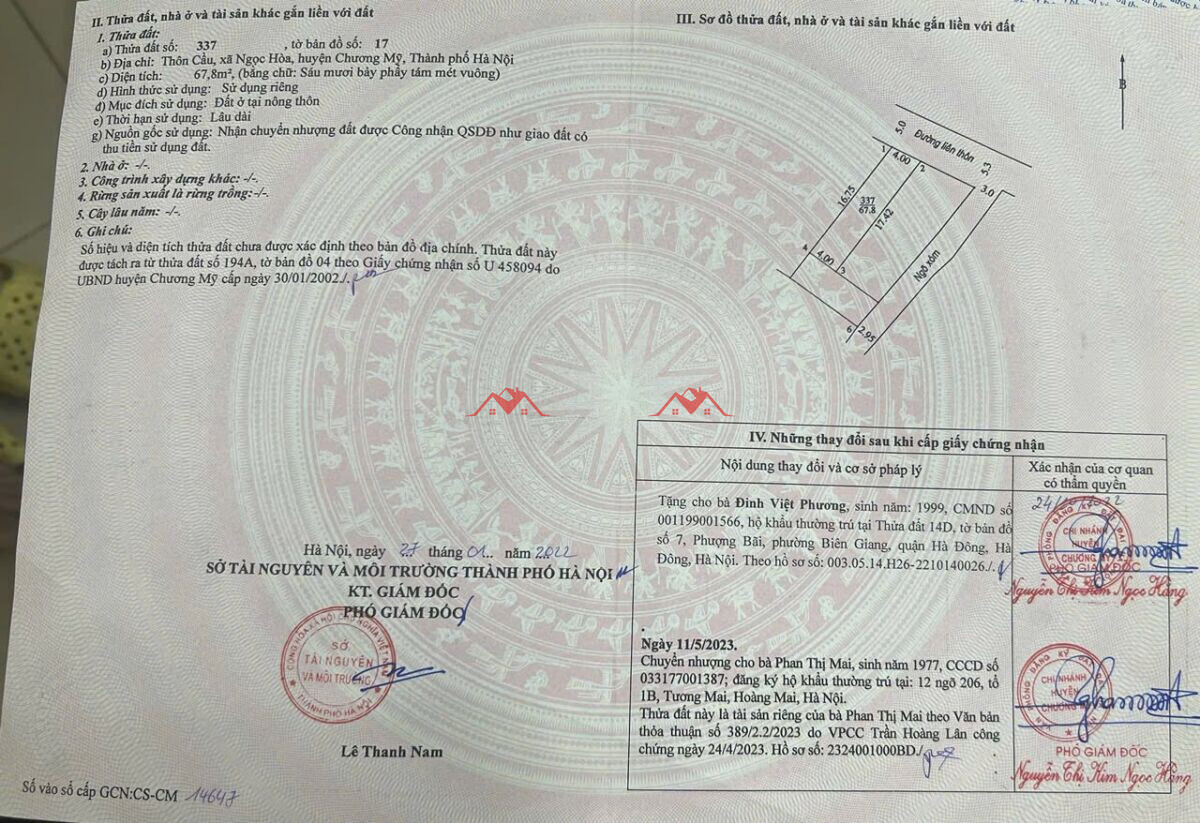 II. Thửa đất, nhà ở và tài sản khác gắn liền với đất
1. Thửa đất:
a) Thửa đất số: 337 , tờ bản đồ số: 17
b) Địa chỉ: Thôn Cầu, xã Ngọc Hòa, huyện Chương Mỹ, Thành phố Hà Nội
c) Diện tích: 67,8m², (bằng chữ: Sáu mươi bảy phẩy tám mét vuông)
d) Hình thức sử dụng: Sử dụng riêng
đ) Mục đích sử dụng: Đất ở tại nông thôn
e) Thời hạn sử dụng: Lâu dài
g) Nguồn gốc sử dụng: Nhận chuyển nhượng đất được Công nhận QSDĐ như giao đất có
thu tiền sử dụng đất.
2. Nhà ở: -/-.
3. Công trình xây dựng khác: -/-.
4. Rừng sản xuất là rừng trồng:-/-.
5. Cây lâu năm: -/-.
6. Ghi chú:
Số hiệu và diện tích thửa đất chưa được xác định theo bản đồ địa chính. Thửa đất này
được tách ra từ thửa đất số 194A, tờ bản đồ 04 theo Giấy chứng nhận số U 458094 do
UBND huyện Chương Mỹ cấp ngày 30/01/2002./.
Hà Nội, ngày 27 tháng 01.. năm 2022
SỞ TÀI NGUYÊN VÀ MÔI TRƯỜNG THÀNH PHỐ HÀ NỘI
KT. GIÁM ĐỐC
PHÓ GIÁM ĐỐC
CỘNG HÒA XÃ HỘI CHỦ NGHĨA VIỆT NAM
SỞ
TÀI NGUYÊN
VÀ MÔI TRƯỜNG
THÀNH PHỐ HÀ NỘI
Lê Thanh Nam
Số vào sổ cấp GCN:CS-CM 14647
III. Sơ đồ thửa đất, nhà ở và tài sản khác gắn liền với đất
B
5.0
Đường liên thôn
5.3
1
4.00
2
3.0
16.75
337
67.8
17.42
4
4.00
3
Ngõ xóm
6
2.95
IV. Những thay đổi sau khi cấp giấy chứng nhận
Nội dung thay đổi và cơ sở pháp lý
Xác nhận của cơ quan
có thẩm quyền
Tặng cho bà Đinh Việt Phương, sinh năm: 1999, CMND số
001199001566, hộ khẩu thường trú tại Thửa đất 14D, tờ bản đồ
số 7, Phượng Bãi, phường Biên Giang, quận Hà Đông, Hà
Đông, Hà Nội. Theo hồ sơ số: 003.05.14.H26-2210140026./.
24/10/2022
CHI NHÁNH
HUYỆN
CHƯƠNG
PHÓ GIÁM ĐỐC
Nguyễn Thị Kim Ngọc Hằng
Ngày 11/5/2023.
Chuyển nhượng cho bà Phan Thị Mai, sinh năm 1977, CCCD số
033177001387; đăng ký hộ khẩu thường trú tại: 12 ngõ 206, tổ
1B, Tương Mai, Hoàng Mai, Hà Nội.
Thửa đất này là tài sản riêng của bà Phan Thị Mai theo Văn bản
thỏa thuận số 389/2.2/2023 do VPCC Trần Hoàng Lân công
chứng ngày 24/4/2023. Hồ sơ số: 2324001000BD./
CHI NHÁNH
HUYỆN
CHƯƠNG
PHÓ GIÁM ĐỐC
Nguyễn Thị Kim Ngọc Hằng